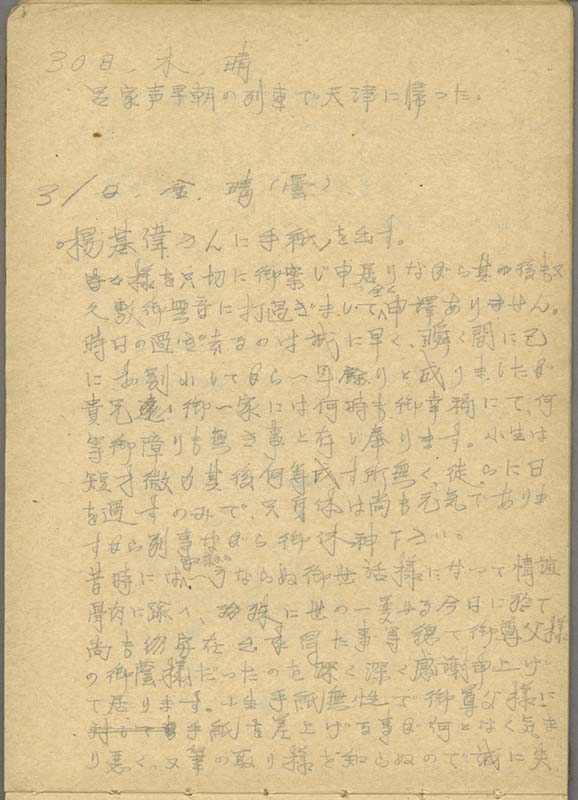 30日、木、晴
呂家声早朝の列車で天津に帰った。
31日、金、晴(曇)
楊基偉さんに手紙を出す。
皆々様を只切に御案じ申居りながら其の後も又
久敷御無音に打過ぎまして全く申訳ありません。
時日の過ぎ去るのは誠に早く、瞬く間に已
に お別れしてから一年余りと成りましたが
貴兄達御一家には何時も御幸福にて、何
等御障りも無き事と存じ奉ります。小生は
短才微力其後何等成す所無く、徒らに日
を過すのみで、只身体は尚も元気でありま
すから別事ながら御休神下さい。
昔時には一方ならぬ御世話様になって情誼
骨肉に踰へ、に世の一美せる今日に於て
尚も出来得た事等総て御尊父様
の御蔭様だったのを深く深く感謝申上げ
て居ります。小生手紙無性で御尊父様に
対しても手紙を差上げる事が何となく気ま
り悪く、又筆の取り様を知らぬので誠に失